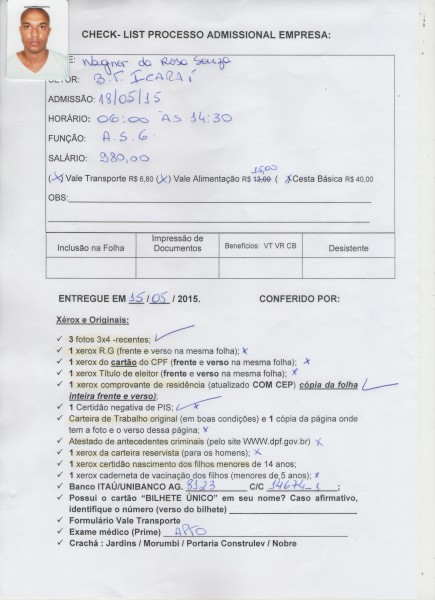 CHECK- LIST PROCESSO ADMISSIONAL EMPRESA:
E: Wagner da Rosa Souza
SETOR: B.T. ICARAÍ
ADMISSÃO: 18/05/15
HORÁRIO: 06:00 ÀS 14:30
FUNÇÃO: A.S.G.
SALÁRIO: 980,00
15,00
(X) Vale Transporte R$ 6,80 (X) Vale Alimentação R$ 13,00 ( X Cesta Básica R$ 40,00
OBS:
Inclusão na Folha
Impressão de Documentos
Benefícios: VT VR CB
Desistente
ENTREGUE EM 15/05/ 2015. CONFERIDO POR:
Xérox e Originais:
✓ 3 fotos 3x4 -recentes; ✓
✓ 1 xerox R.G (frente e verso na mesma folha); x
✓ 1 xerox do cartão do CPF (frente e verso na mesma folha); x
✓ 1 xerox Título de eleitor (frente e verso na mesma folha); x
✓ 1 xerox comprovante de residência (atualizado COM CEP) cópia da folha ✓
inteira frente e verso);
✓ 1 Certidão negativa de PIS; ✓ x
✓ Carteira de Trabalho original (em boas condições) e 1 cópia da página onde
tem a foto e o verso dessa página; x
✓ Atestado de antecedentes criminais (pelo site WWW.dpf.gov.br) x
✓ 1 xerox da carteira reservista (para os homens); x
✓ 1 xerox certidão nascimento dos filhos menores de 14 anos;
✓ 1 xerox caderneta de vacinação dos filhos (menores de 5 anos); x
✓ Banco ITAÚ/UNIBANCO AG. 8123 C/C 14674-1 ;
✓ Possui o cartão “BILHETE ÚNICO” em seu nome? Caso afirmativo,
identifique o número (verso do bilhete)
✓ Formulário Vale Transporte
✓ Exame médico (Prime) APTO
✓ Crachá : Jardins / Morumbi / Portaria Construlev / Nobre